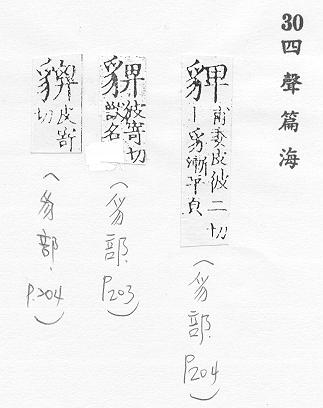 30 四聲篇海
甫委皮彼二切
丨豸漸平皃
(豸部. P204)
彼嵜切
獸名
(豸部. P203)
皮嵜
切
(豸部. P.204)